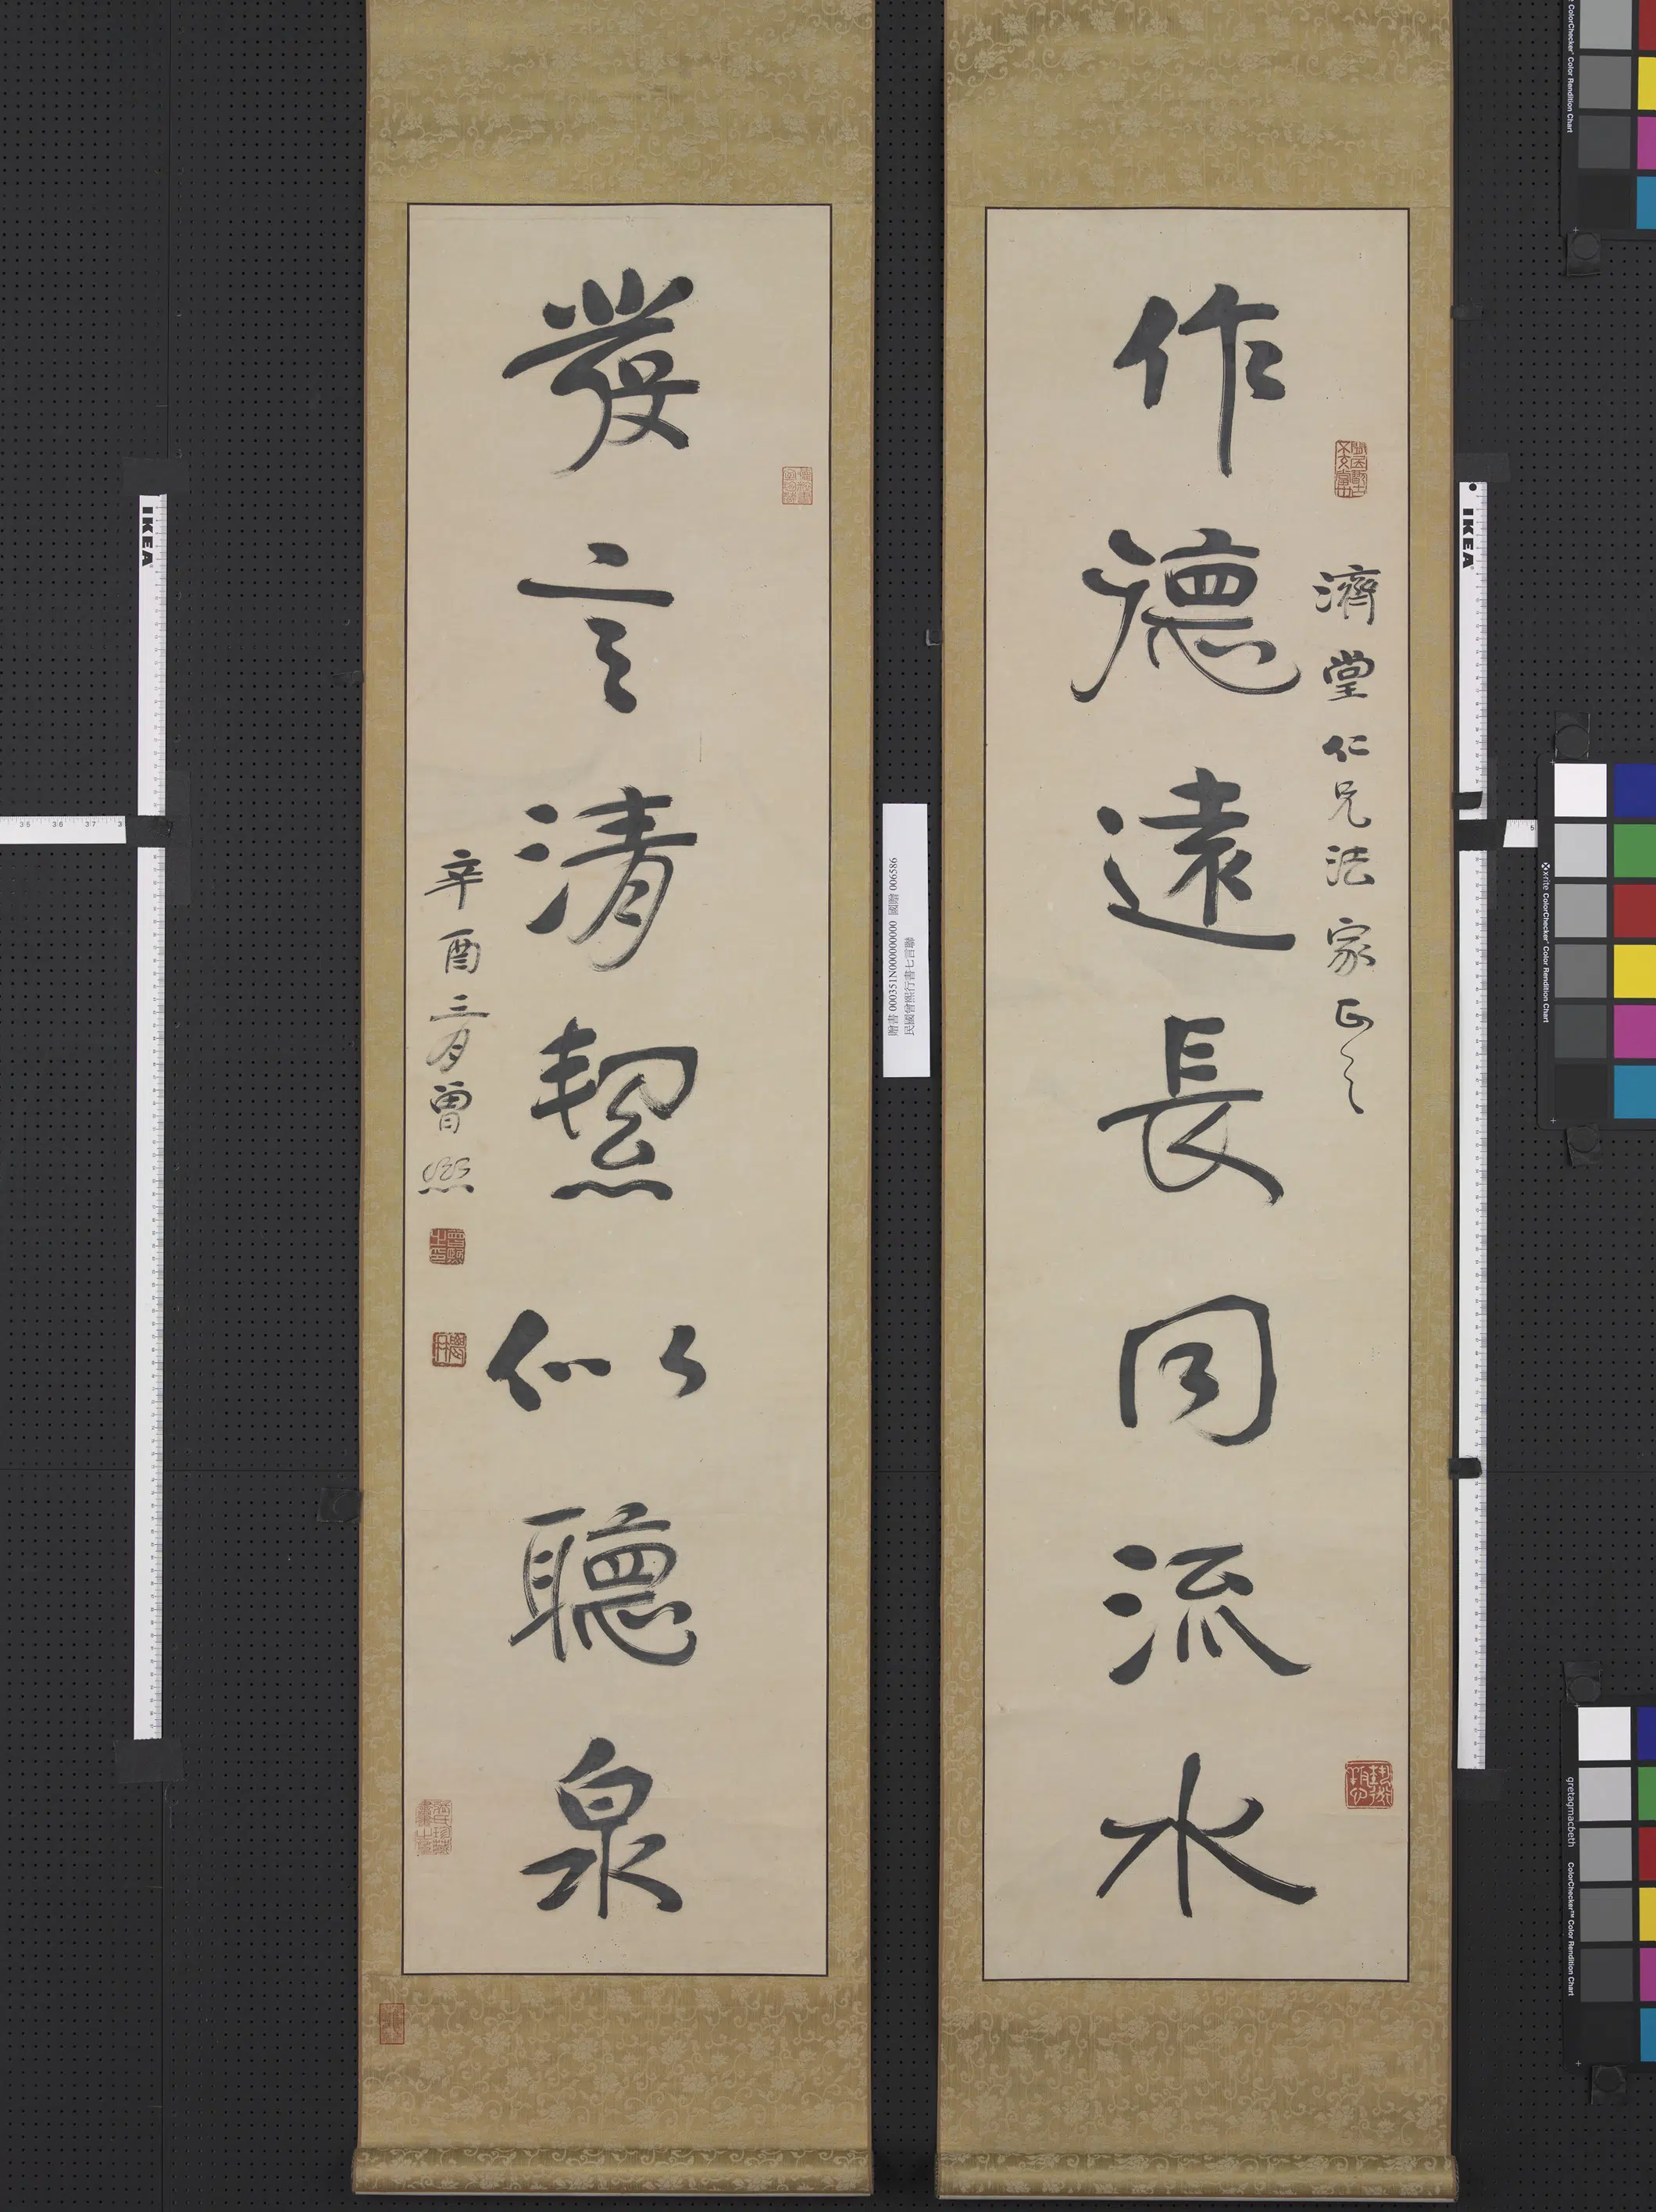 作德遠長同流水
濟堂仁兄法家正之
發言清絜似聽泉
辛酉二月曾熙
曾熙之印
贈書 000351N000000000 國贈 006586
民國曾熙行書七言聯
IKEA
IKEA
35 36 37
x-rite ColorChecker Color Rendition Chart
ColorChecker Color Rendition Chart
gretagmacbeth ColorChecker Color Rendition Chart